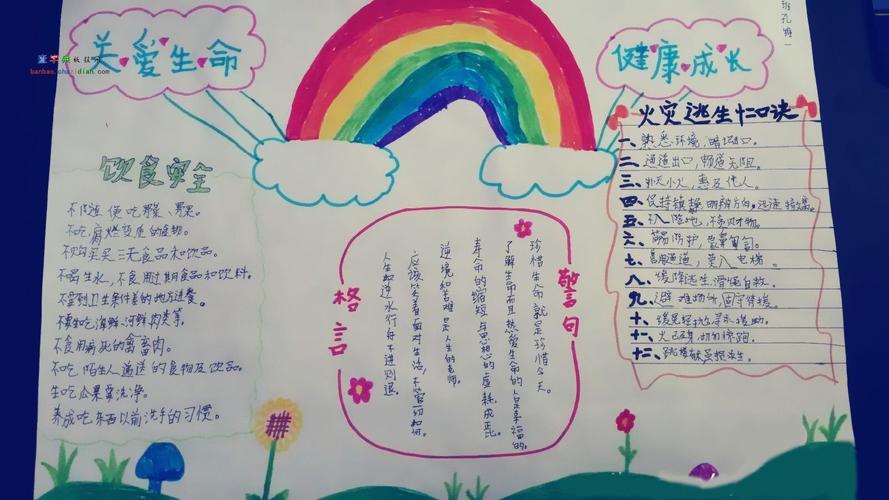 关爱生命
健康成长
饮食安全
不随便吃野菜、野果。
不吃腐烂变质的食物。
不购买三无食品和饮品。
不喝生水,不食用过期食品和饮料。
不要到卫生条件差的地方进餐。
不食用病死的禽畜肉。
不吃陌生人递送的食物及饮品。
生吃瓜果要洗净。
养成吃东西以前洗手的习惯。
警句
珍惜生命就是珍惜今天。
了解生命而且热爱生命的人是幸福的。
寿命的缩短与思想的虚耗成正比。
逆境和苦难是人生的老师。
应该笑着面对生活,不管一切如何。
人生如逆水行舟不进则退。
格言
火灾逃生十二口诀
一、熟悉环境,暗记出口。
二、通道出口,畅通无阻。
三、扑灭小火,惠及他人。
四、保持镇静,明辨方向,迅速撤离。
五、不入险地,不贪财物。
六、简易防护,
七、善用通道,莫入电梯。
八、缓降逃生,滑绳自救。
九、避难场所,固守待援。
十、缓晃轻抛,寻求援助。
十一、火已及身,切勿惊跑。
十二、跳楼有术,
banbao.chazidian.com